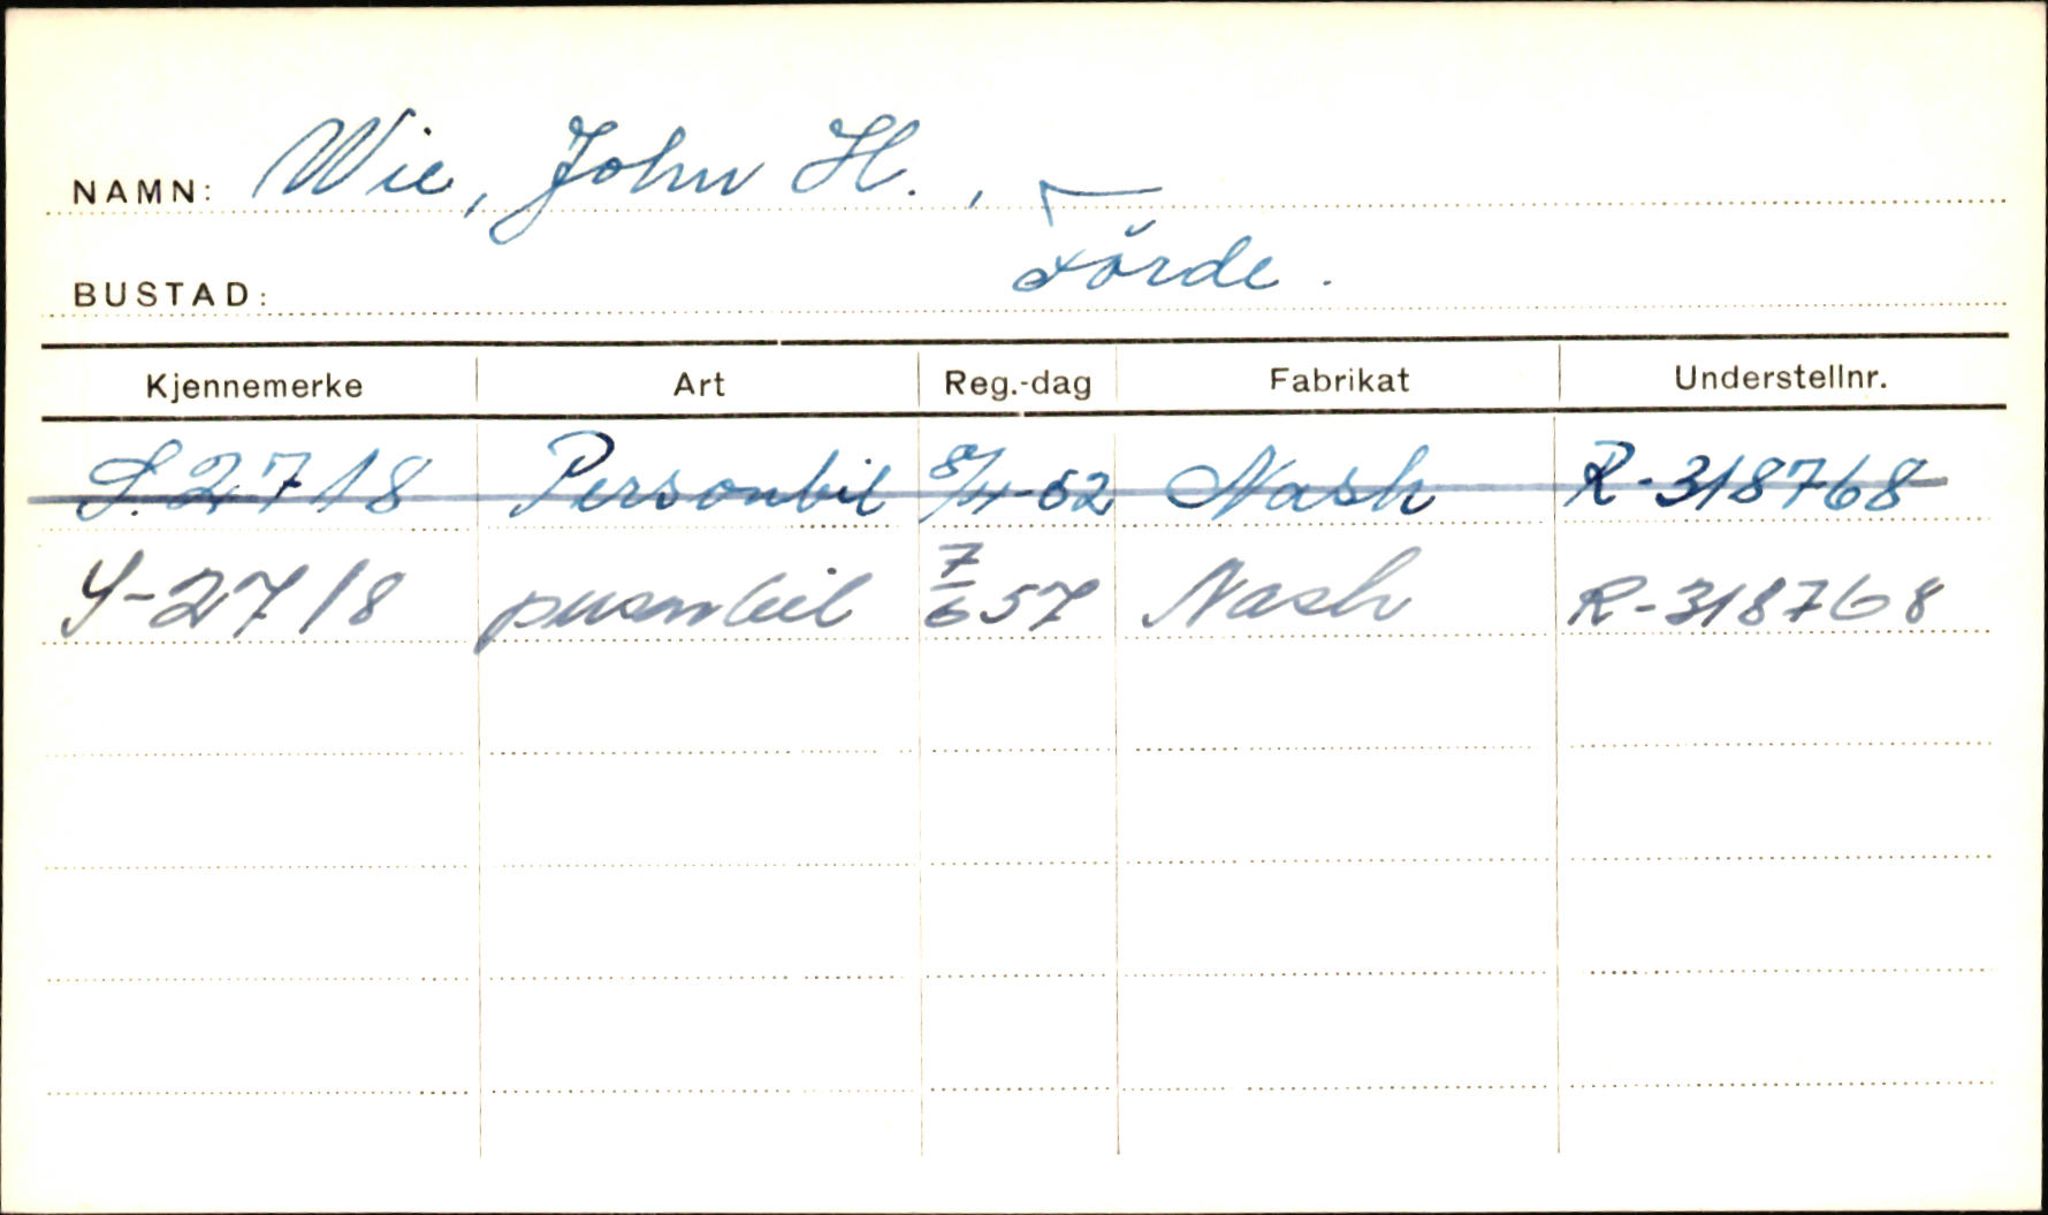 NAMN: Wie, John H.,
BUSTAD: Förde.
Kjennemerke Art Reg.-dag Fabrikat Understellnr.
S.2718 Personbil 8/4-52 Nash R-318768
S-2718 personbil 7/6 57 Nash R-318768